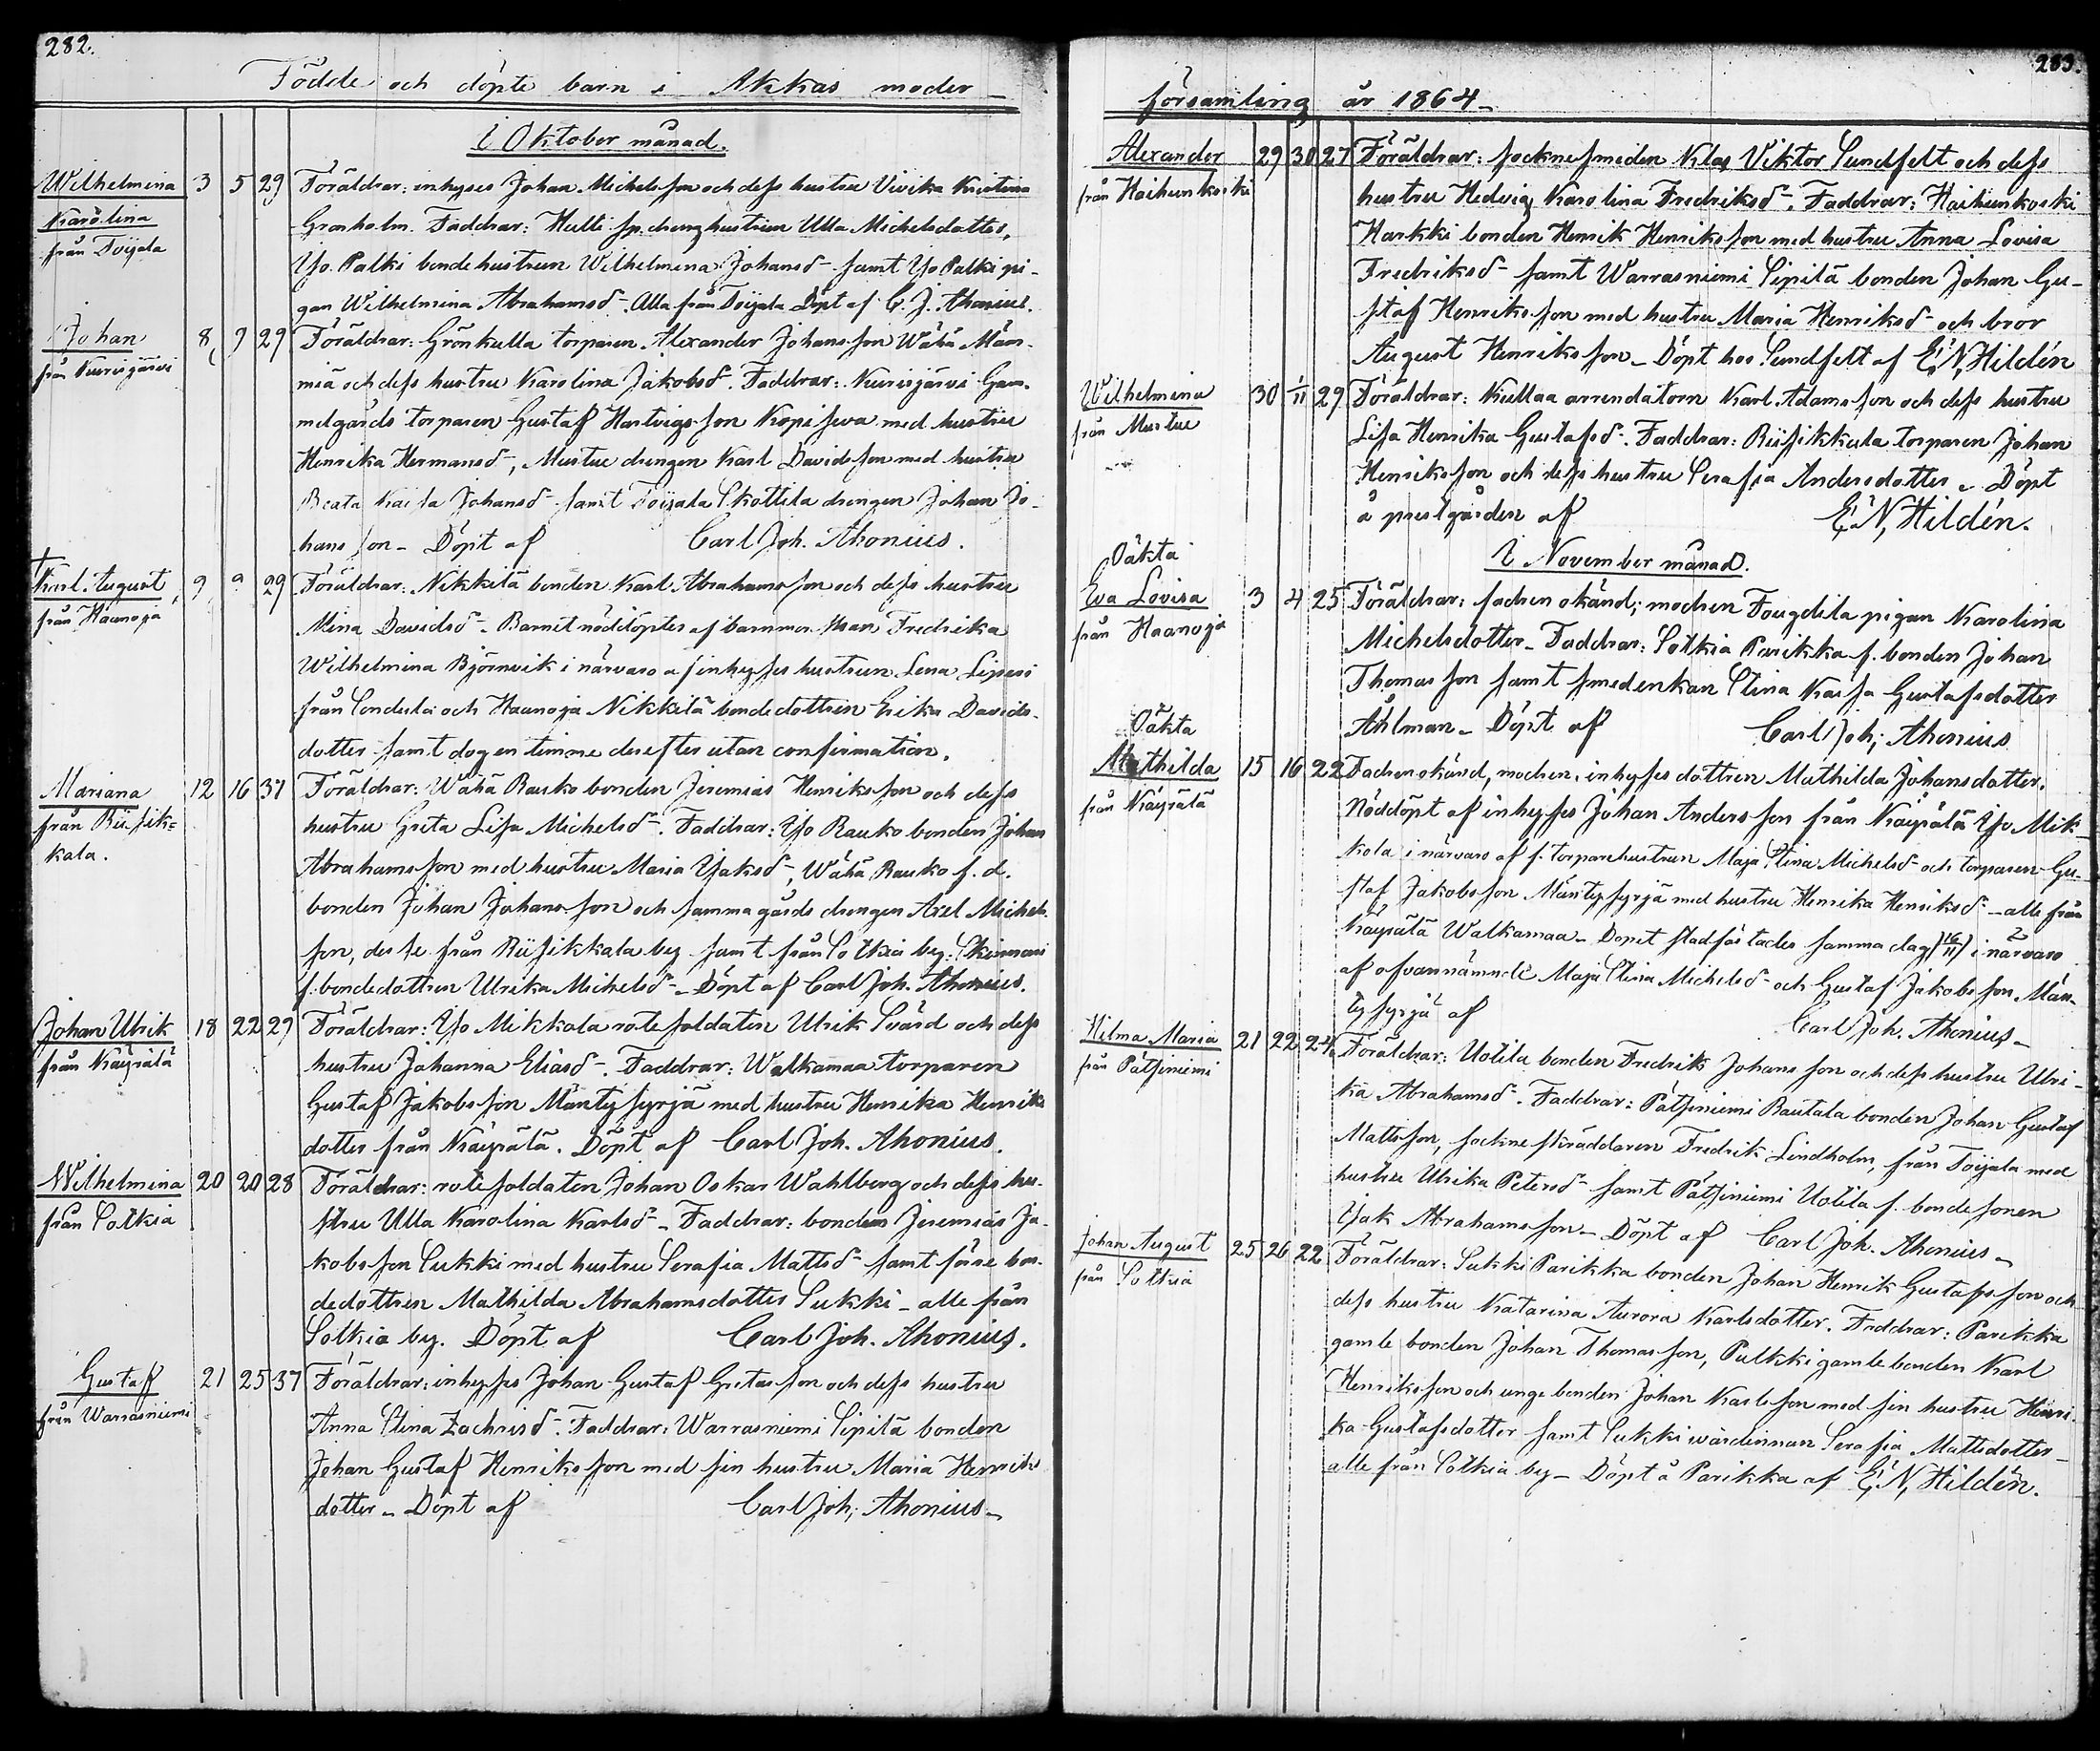 282.
Födde och döpte barn i Akkas moder-
I Oktober månad.
Wilhelmina 3 5 29 Föräldrar: inhyses Johan Michelsson och dess hustru Vivika Kristina
Karolina Grönholm. Faddrar: Hulli sp. drenghustrun Ulla Michelsdotter,
från Toijala Yso Palki bondehustrun Wilhelmina Johansd- samt Yso Palki pi-
gan Wilhelmina Abrahamsd-. Alla från Toijala Döpt af C. J. Ahonius.
Johan 8 9 29 Föräldrar: Grönkulla torparen Alexander Johansson Wähä Mäm-
från Kurisjärvi miä och dess hustru Karolina Jakobsd-. Faddrar: Kurisjärvi Gam-
melgårds torparen Gustaf Hartvigsson Kopisewa med hustru
Henrika Hermansd-, Mustue drengen Karl Davidsson med hustru
Beata Kaisa Johansd- samt Toijala Skottila drengen Johan Jo-
hansson - Döpt af Carl Joh. Ahonius.
† Karl August 9 9 29 Föräldrar: Nikkilä bonden Karl Abrahamsson och dess hustru
från Haanoja Mina Davidsd-. Barnet nöddöptes af barnmorskan Fredrika
Wilhelmina Björnvik i närvaro af inhysses hustrun Lena
från Sondula och Haanoja Nikkilä bondedottren Erika Davids-
dotter samt dog en timme derefter utan confirmation.
Mariana 12 16 37 Föräldrar: Wähä Rauko bonden Jeremias Henriksson och dess
från Riisik= hustru Greta Lisa Michelsd-. Faddrar: Yso Rauko bonden Johan
kala. Abrahamsson med hustru Maria Isaksd-, Wähä Rauko f. d.
bonden Johan Johansson och samma gårds drengen Axel Michels-
son, desse från Riisikkala by samt från Sotkia by: Skinnari
f. bondedottren Ulrika Michelsd- - Döpt af Carl Joh. Ahonius.
Johan Ulrik 18 22 29 Föräldrar: Yso Mikkola rote soldaten Ulrik Svärd och dess
från Käyrälä hustru Johanna Eliasd-. Faddrar: Walkamaa torparen
Gustaf Jakobsson Mäntysyrjä med hustru Henrika Henriks
dotter från Käyrälä. Döpt af Carl Joh. Ahonius.
Wilhelmina 20 20 28 Föräldrar: rote soldaten Johan Oskar Wahlberg och dess hu-
från Sotkia stru Ulla Karolina Karlsd- - Faddrar: bonden Jeremias Ja-
kobsson Sukki med hustru Serafia Mattsd- samt förre bon-
dedottren Mathilda Abrahamsdotter Sukki - alle från
Sotkia by. Döpt af Carl Joh. Ahonius.
Gustaf 21 25 37 Föräldrar: inhysses Johan Gustaf Gretasson och dess hustru
från Warrasniemi Anna Stina Zachrisd-. Faddrar: Warrasniemi Sipilä bonden
Johan Gustaf Henriksson med sin hustru Maria Henriks
dotter - Döpt af Carl Joh; Ahonius-
283.
församling år 1864-
Alexander 29 30 27 Föräldrar: socknesmeden Klas Viktor Sundfelt och dess
från Haihunkoski hustru Hedvig Karolina Fredriksd-. Faddrar: Haihunkoski
Harkki bonden Henrik Henriksson med hustru Anna Lovisa
Fredriksd- samt Warrasniemi Sipilä bonden Johan Gu-
staf Henriksson med hustru Maria Henriksd- och bror
August Henriksson - Döpt hos Sundfelt af E. N. Hildén
Wilhelmina 30 1/11 29 Föräldrar: Kullaa arrendatorn Karl Adamsson och dess hustru
från Mustue Lisa Henrika Gustafsd-. Faddrar: Riisikkala torparen Johan
Henriksson och dess hustru Serafia Andersdotter - Döpt
å prestgården af E. N. Hildén.
I November månad.
Oäkta
Eva Lovisa 3 4 25 Föräldrar: fadren okänd; modren Fougdila pigan Karolina
från Haanoja Michelsdotter - Faddrar: Sotkia Parikka f. bonden Johan
Thomasson samt smedenkan Stina Kaisa Gustafsdotter
Åhlman - Döpt af Carl Joh; Ahonius
Oäkta
Mathilda 15 16 22 Fadren okänd, modren: inhysses dottren Mathilda Johansdotter.
från Käyrälä Nöddöpt af inhysses Johan Andersson från Käyrälä Yso Mik-
kola i närvaro af f. torparehustrun Maja Stina Michelsd- och torparen Gu-
staf Jakobsson Mäntysyrjä med hustru Henrika Henriksd- - alle från
Käyrälä Walkamaa - Dopet stadfästades samma dag (16/11) i närvaro
af ofvannämnde Maja Stina Michelsd- och Gustaf Jakobsson Män-
tysyrjä af Carl Joh. Ahonius-
Hilma Maria 21 22 24 Föräldrar: Uotila bonden Fredrik Johansson och dess hustru Ulri-
från Pätsiniemi ka Abrahamsd-. Faddrar: Pätsiniemi Rautala bonden Johan Gustaf
Mattsson, socknes skräddaren Fredrik Lindholm, från Toijala med
hustru Ulrika Petersd- samt Pätsiniemi Uotila f. bondesonen
Isak Abrahamsson - Döpt af Carl Joh. Ahonius-
Johan August 25 26 22 Föräldrar: Sukki Parikka bonden Johan Henrik Gustafsson och
från Sotkia dess hustru Katarina Aurora Karlsdotter. Faddrar: Parikka
gamle bonden Johan Thomasson, Pulkki gamle bonden Karl
Henriksson och unge bonden Johan Karlsson med sin hustru Henri-
ka Gustafsdotter samt Sukki wärdinnan Serafia Mattsdotter-
alle från Sotkia by - Döpt å Parikka af E. N. Hildén.